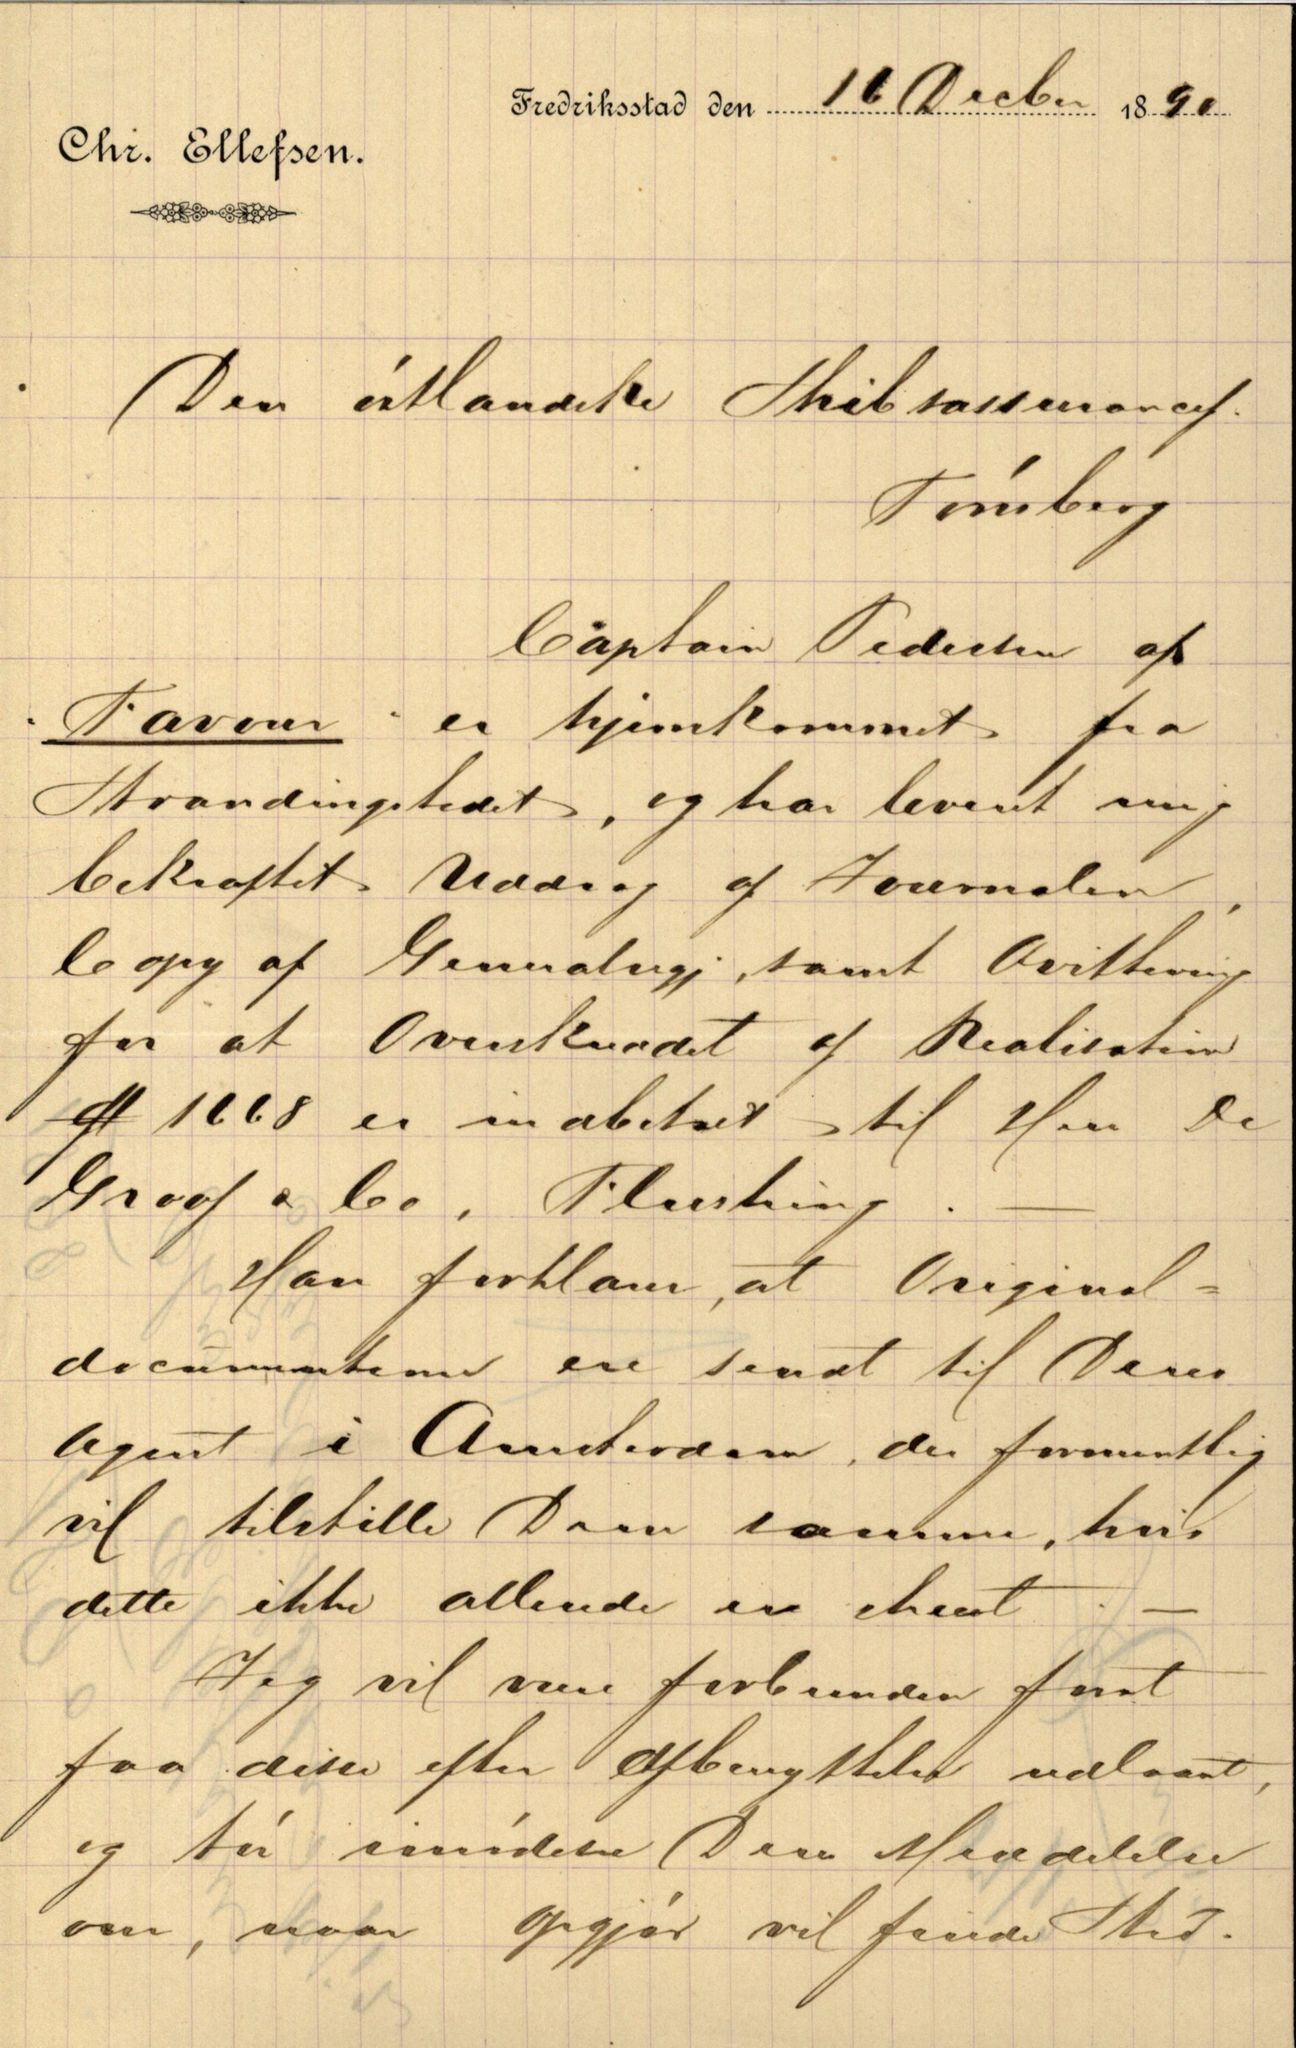 Fredriksstad den 16 Decber 1890
Chr. Ellefsen.
Den östlandske Skibsassurancef.
Tönsberg
Captain Pedersen af
"Favour" er hjemkommet fra
Strandingstedet, og har leveret mig
bekræftet Uddrag af Journalen,
Copy af samt Qvittering
for at Overskuddet af Realisation
1668 er indbetalt til Herr De
Groof & Co, Flushing. —
Han forklarer, at Original=
documenterne ere sendt til Deres
Agent i Amsterdam, der formentlig
vil tilstille Dem samme, hvis
dette ikke allerede er skeet. —
Jeg vil være forbunden for at
faa disse efter Afbenyttelse udlaant,
og tör imödese Deres Meddelelse
om, naar Opgjör vil finde Sted.